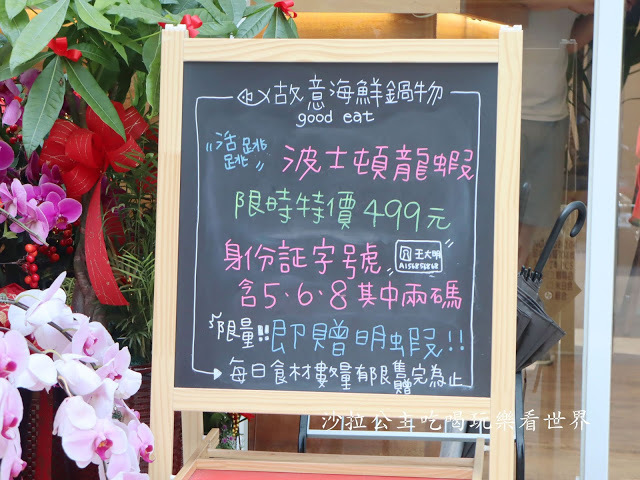 故意海鮮鍋物
good eat
"活跳跳" 波士頓龍蝦
限時特價499元
身份証字號
王大明
A156858668
含5、6、8其中兩碼
限量!!即贈明蝦!!
每日食材數量有限售完為止
贈
沙拉公主吃喝玩樂看世界